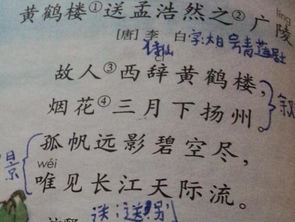 líng
黄鹤楼①送孟浩然之②广陵
[唐] 李白 字:太白 号青莲居士
诗仙
cí
故人③西辞黄鹤楼,
烟花④三月下扬州。
叙
孤帆远影碧空尽,
景
wéi
唯见长江天际流。
送:送别